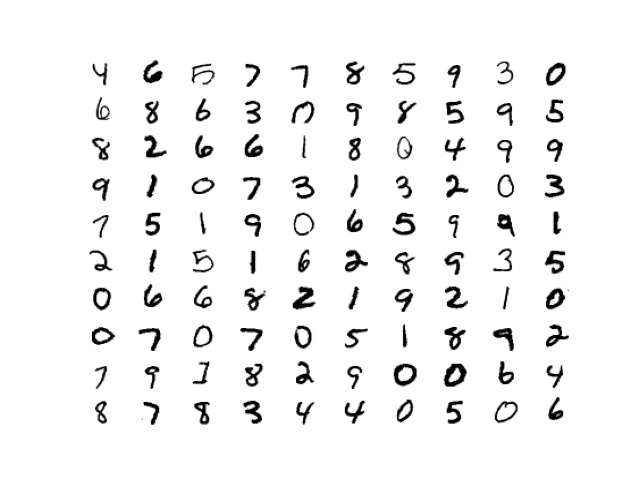 4 6 5 7 7 8 5 9 3 0
6 8 6 3 0 9 8 5 9 5
8 2 6 6 1 8 0 4 9 9
9 1 0 7 3 1 3 2 0 3
7 5 1 9 0 6 5 9 9 1
2 1 5 1 6 2 8 9 3 5
0 6 6 8 2 1 9 2 1 0
0 7 0 7 0 5 1 8 9 2
7 9 1 8 2 9 0 0 6 4
8 7 8 3 4 4 0 5 0 6